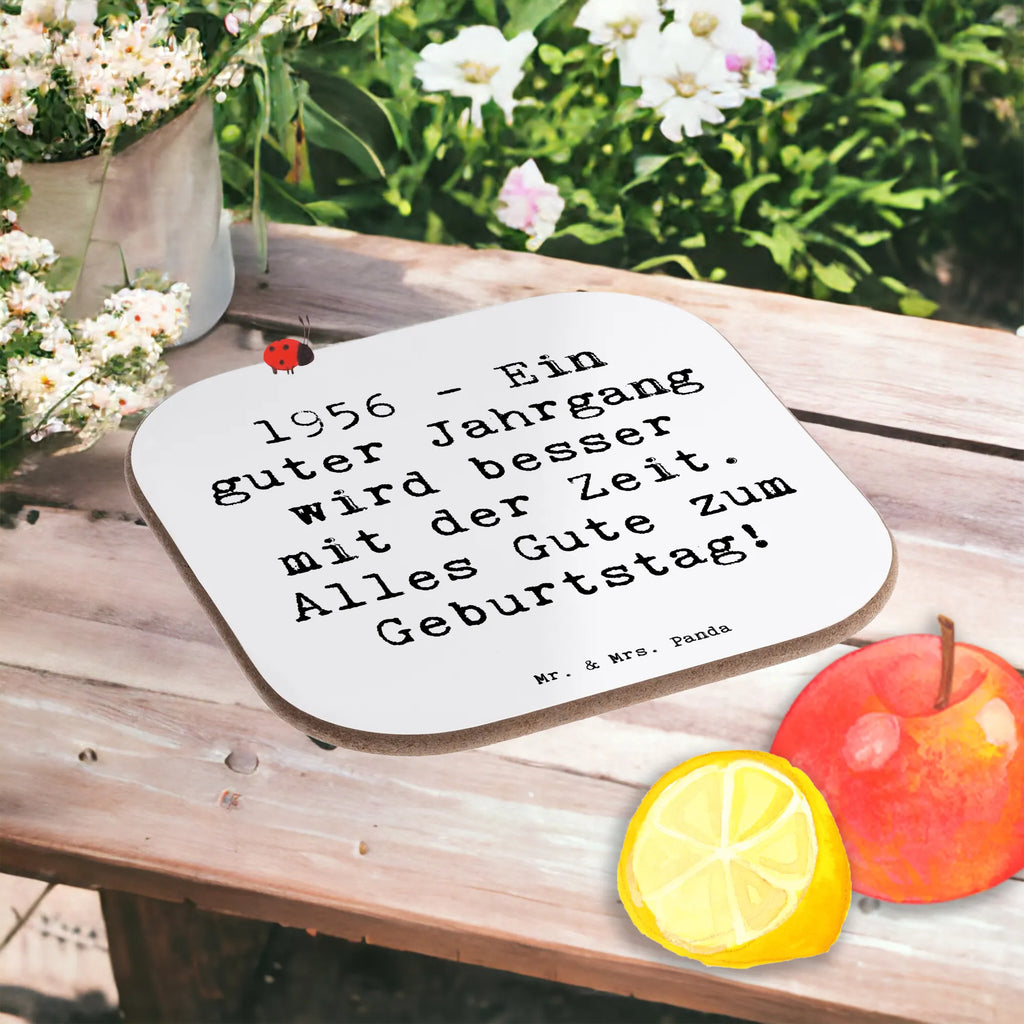 1956 - Ein
guter Jahrgang
wird besser
mit der Zeit.
Alles Gute zum
Geburtstag!
Mr. & Mrs. Panda